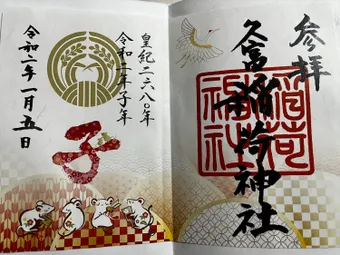 参拝
久富稲荷神社
稲荷
皇紀二六八〇年
令和二年子年
子
令和二年一月五日